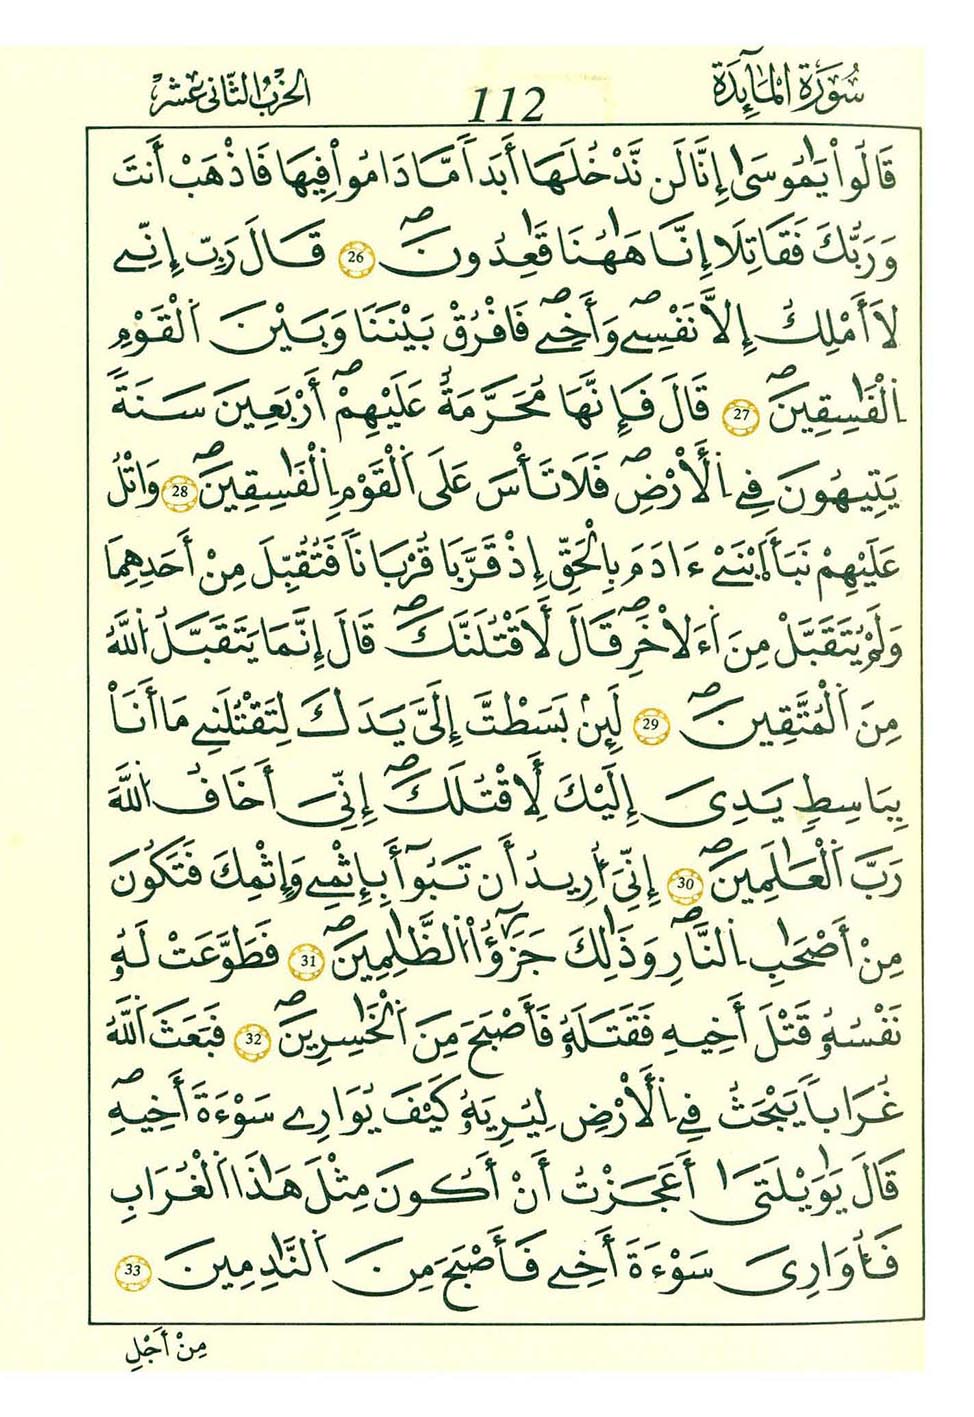 سُورَةُ الْمَآئِدَة
112
الحزب الثاني عشر
قَالُواْ يَٰمُوسَىٰٓ إِنَّا لَن نَّدْخُلَهَا أَبَداً مَّا دَامُواْ فِيهَا فَاذْهَبْ أَنتَ
وَرَبُّكَ فَقَاتِلَا إِنَّا هَٰهُنَا قَٰعِدُونَۖ 26 قَالَ رَبِّ إِنِّے
لَا أَمْلِكُ إِلَّا نَفْسِےۖ وَأَخِےۖ فَافْرُقْ بَيْنَنَا وَبَيْنَ اَ۬لْقَوْمِ
اِ۬لْفَٰسِقِينَۖ 27 قَالَ فَإِنَّهَا مُحَرَّمَةٌ عَلَيْهِمْۖ أَرْبَعِينَ سَنَةً
يَتِيهُونَ فِے اِ۬لْأَرْضِۖ فَلَا تَأْسَ عَلَى اَ۬لْقَوْمِ اِ۬لْفَٰسِقِينَۖ 28 وَاتْلُ
عَلَيْهِمْ نَبَأَ اَ۪بْنَےْ ءَادَمَ بِالْحَقِّ إِذْ قَرَّبَا قُرْبَاناً فَتُقُبِّلَ مِنْ أَحَدِهِمَا
وَلَمْ يُتَقَبَّلْ مِنَ اَ۬ءَلاْخَرِۖ قَالَ لَأَقْتُلَنَّكَۖ قَالَ إِنَّمَا يَتَقَبَّلُ اُ۬للَّهُ
مِنَ اَ۬لْمُتَّقِينَۖ 29 لَئِنۢ بَسَطْتَ إِلَيَّ يَدَكَ لِتَقْتُلَنِے مَا أَنَا۠
بِبَاسِطٍ يَدِيَ إِلَيْكَ لِأَقْتُلَكَۖ إِنِّيَ أَخَافُ اُ۬للَّهَ
رَبَّ اَ۬لْعَٰلَمِينَۖ 30 إِنِّيَ أُرِيدُ أَن تَبُوٓأَ بِإِثْمِے وَإِثْمِكَ فَتَكُونَ
مِنْ أَصْحَٰبِ اِ۬لنَّارِۖ وَذَٰلِكَ جَزَٰٓؤُاْ اُ۬لظَّٰلِمِينَۖ 31 فَطَوَّعَتْ لَهُۥ
نَفْسُهُۥ قَتْلَ أَخِيهِ فَقَتَلَهُۥ فَأَصْبَحَ مِنَ اَ۬لْخَٰسِرِينَۖ 32 فَبَعَثَ اَ۬للَّهُ
غُرَاباً يَبْحَثُ فِے اِ۬لْأَرْضِ لِيُرِيَهُۥ كَيْفَ يُوَٰرِے سَوْءَةَ أَخِيهِۖ
قَالَ يَٰوَيْلَتَىٰٓ أَعَجَزْتُ أَنْ أَكُونَ مِثْلَ هَٰذَا اَ۬لْغُرَابِ
فَأُوَارِيَ سَوْءَةَ أَخِے فَأَصْبَحَ مِنَ اَ۬لنَّٰدِمِينَ 33
مِنْ أَجْلِ